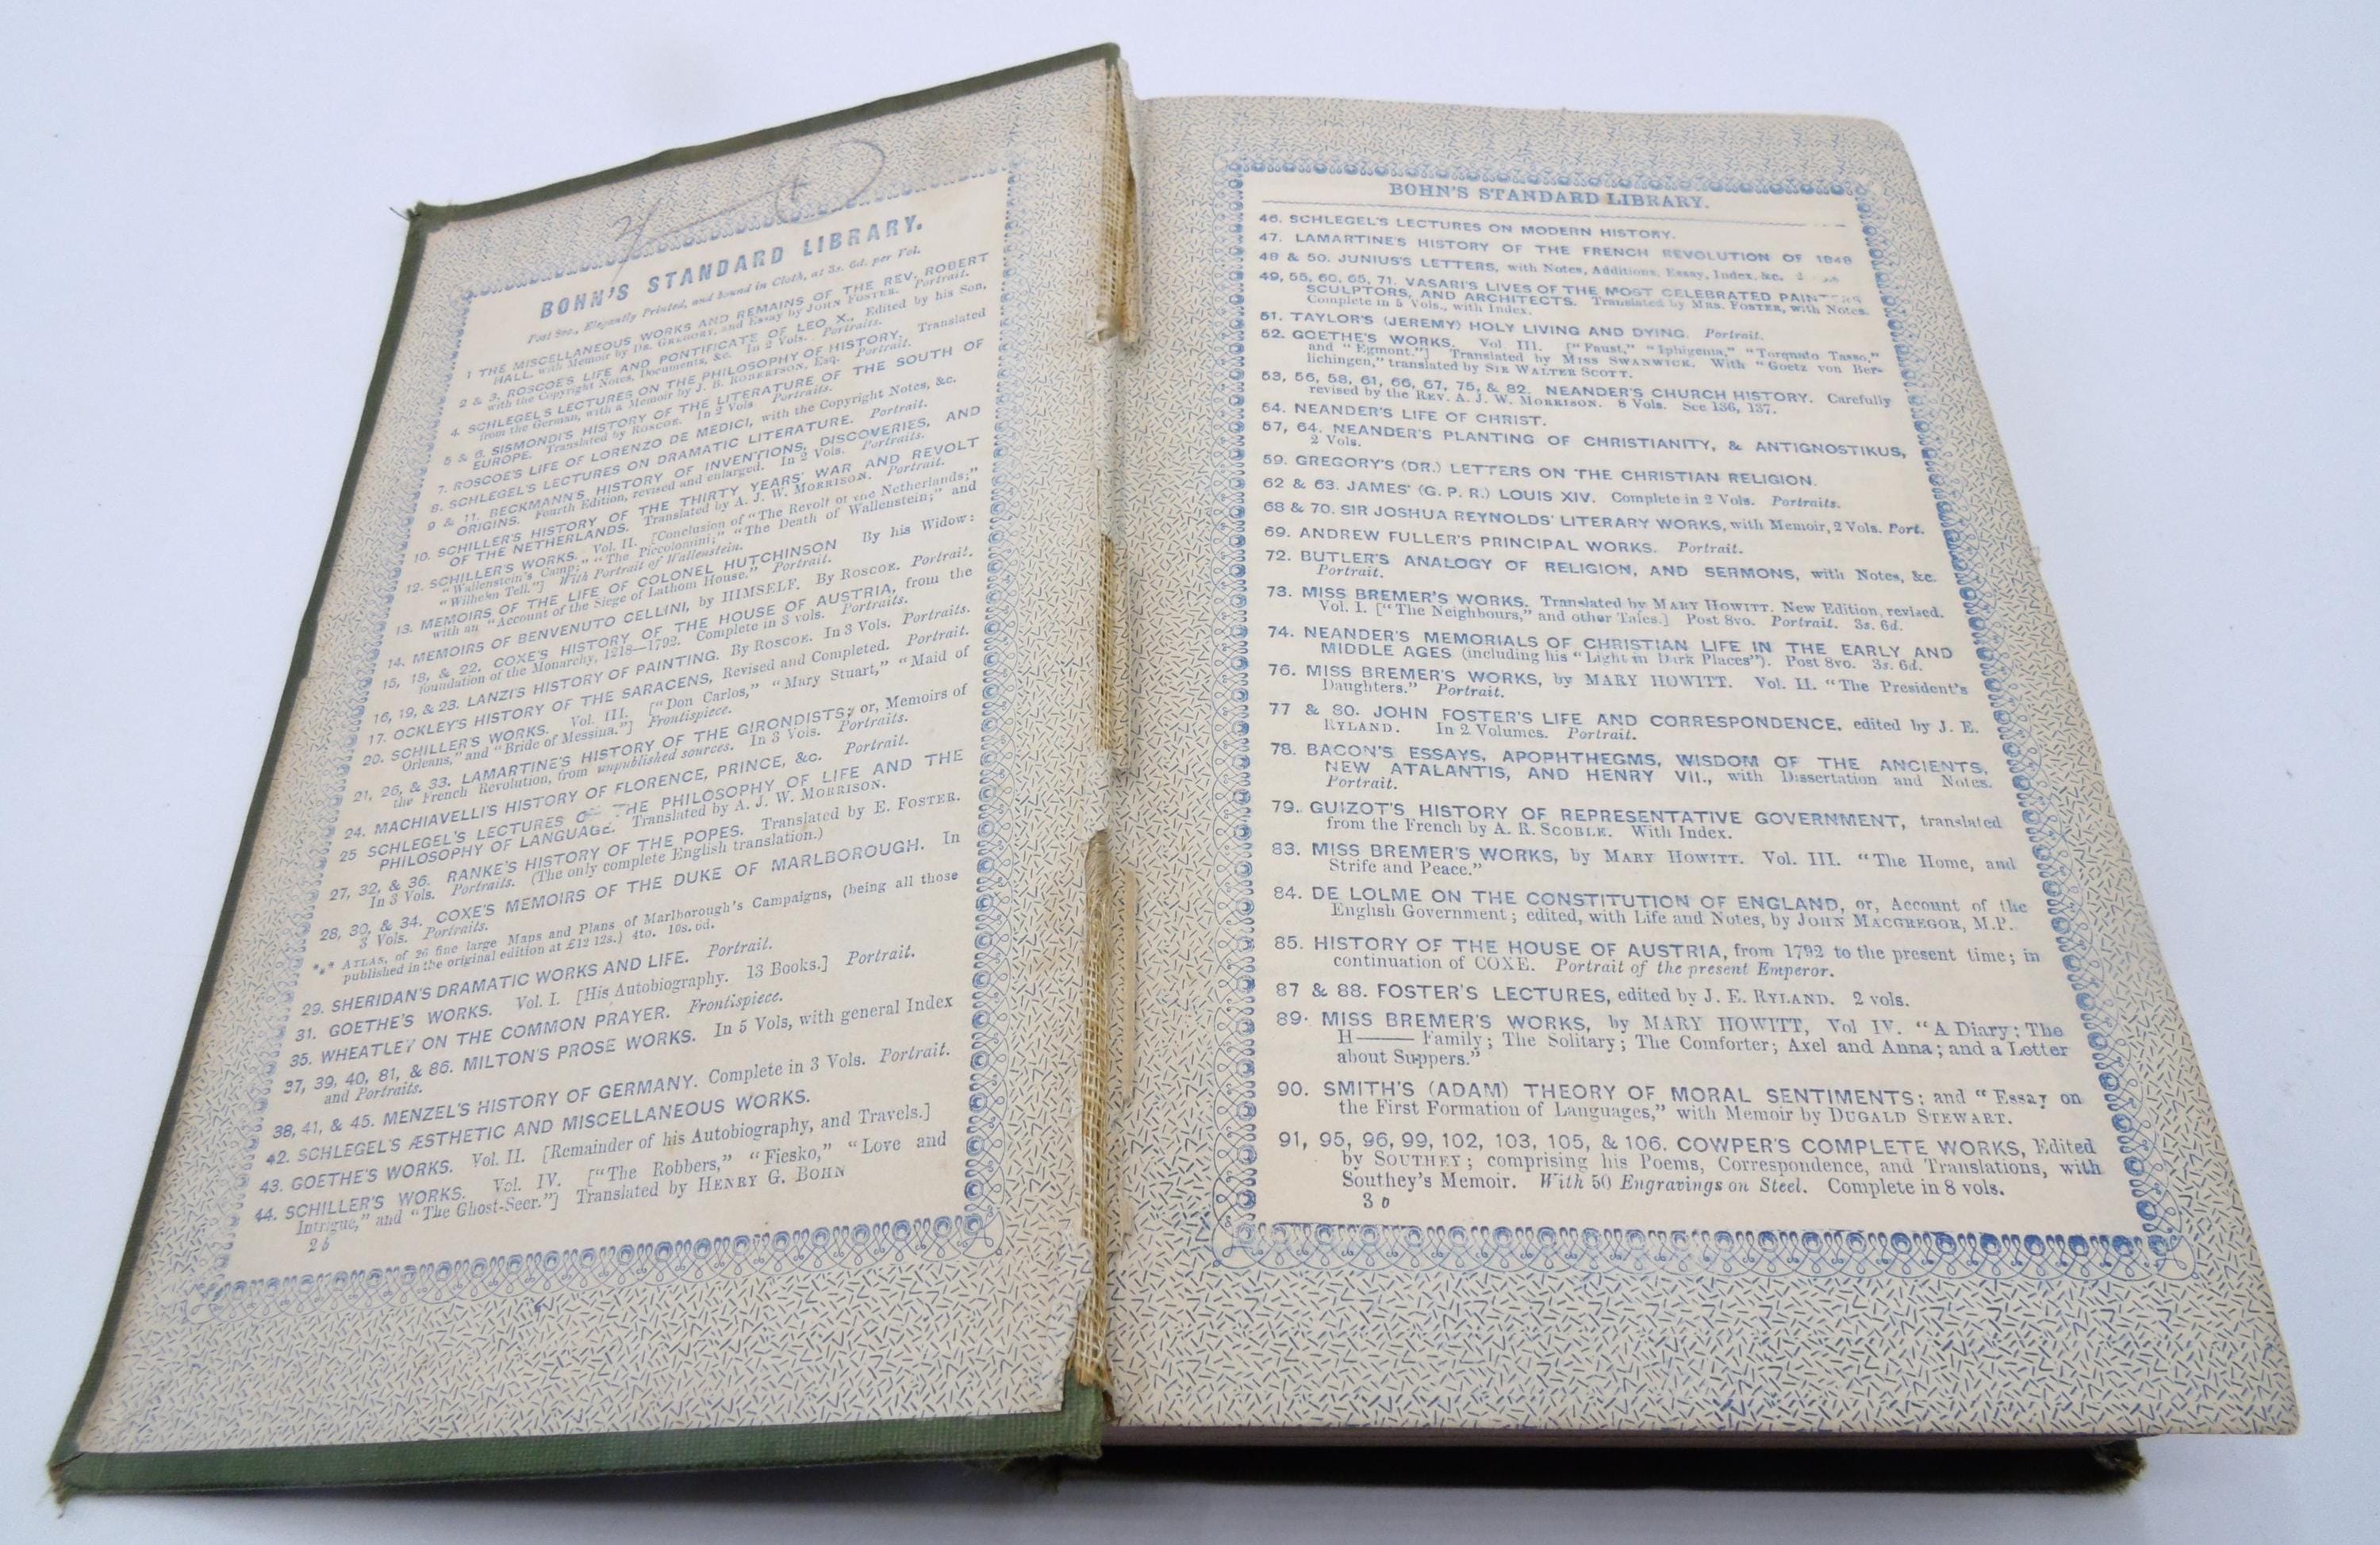 BOHN'S STANDARD LIBRARY.
Post 8vo., Elegantly Printed, and bound in Cloth, at 3s. 6d. per Vol.
1 THE MISCELLANEOUS WORKS AND REMAINS OF THE REV. ROBERT
HALL, with Memoir by DR. GREGORY, and Essay by JOHN FOSTER. Portrait.
2 & 3. ROSCOE'S LIFE AND PONTIFICATE OF LEO X., Edited by his Son,
with the Copyright Notes, Documents, &c. In 2 Vols. Portraits.
4. SCHLEGEL'S LECTURES ON THE PHILOSOPHY OF HISTORY, Translated
from the German, with a Memoir by J. B. ROBERTSON, Esq. Portrait.
5 & 6. SISMONDI'S HISTORY OF THE LITERATURE OF THE SOUTH OF
EUROPE. Translated by ROSCOE. In 2 Vols Portraits.
7. ROSCOE'S LIFE OF LORENZO DE MEDICI, with the Copyright Notes, &c.
8. SCHLEGEL'S LECTURES ON DRAMATIC LITERATURE. Portrait.
9 & 11. BECKMANN'S HISTORY OF INVENTIONS, DISCOVERIES, AND
ORIGINS. Fourth Edition, revised and enlarged. In 2 Vols. Portraits.
10. SCHILLER'S HISTORY OF THE THIRTY YEARS' WAR AND REVOLT
OF THE NETHERLANDS. Translated by A. J. W. MORRISON. Portrait.
12. SCHILLER'S WORKS. Vol. II. [Conclusion of "The Revolt of the Netherlands;"
"Wallenstein's Camp;" "The Piccolomini;" "The Death of Wallenstein;" and
"Wilhelm Tell."] With Portrait of Wallenstein.
13. MEMOIRS OF THE LIFE OF COLONEL HUTCHINSON By his Widow:
with an "Account of the Siege of Lathom House." Portrait.
14. MEMOIRS OF BENVENUTO CELLINI, by HIMSELF. By ROSCOE. Portrait.
15, 18, & 22. COXE'S HISTORY OF THE HOUSE OF AUSTRIA, from the
foundation of the Monarchy, 1218—1792. Complete in 3 vols. Portraits.
16, 19, & 23. LANZI'S HISTORY OF PAINTING. By ROSCOE. In 3 Vols. Portraits.
17. OCKLEY'S HISTORY OF THE SARACENS, Revised and Completed. Portrait.
20. SCHILLER'S WORKS. Vol. III. ["Don Carlos," "Mary Stuart," "Maid of
Orleans," and "Bride of Messina."] Frontispiece.
21, 26, & 33. LAMARTINE'S HISTORY OF THE GIRONDISTS; or, Memoirs of
the French Revolution, from unpublished sources. In 3 Vols. Portraits.
24. MACHIAVELLI'S HISTORY OF FLORENCE, PRINCE, &c. Portrait.
25 SCHLEGEL'S LECTURES THE PHILOSOPHY OF LIFE AND THE
PHILOSOPHY OF LANGUAGE. Translated by A. J. W. MORRISON.
27, 32, & 36. RANKE'S HISTORY OF THE POPES. Translated by E. FOSTER.
In 3 Vols. Portraits. (The only complete English translation.)
28, 30, & 34. COXE'S MEMOIRS OF THE DUKE OF MARLBOROUGH. In
3 Vols. Portraits.
*** ATLAS, of 26 fine large Maps and Plans of Marlborough's Campaigns, (being all those
published in the original edition at £12 12s.) 4to. 10s. 6d.
29. SHERIDAN'S DRAMATIC WORKS AND LIFE. Portrait.
31. GOETHE'S WORKS. Vol. I. [His Autobiography. 13 Books.] Portrait.
35. WHEATLEY ON THE COMMON PRAYER. Frontispiece.
37, 39, 40, 81, & 86. MILTON'S PROSE WORKS. In 5 Vols, with general Index
and Portraits.
38, 41, & 45. MENZEL'S HISTORY OF GERMANY. Complete in 3 Vols. Portrait.
42. SCHLEGEL'S ÆSTHETIC AND MISCELLANEOUS WORKS.
43. GOETHE'S WORKS. Vol. II. [Remainder of his Autobiography, and Travels.]
44. SCHILLER'S WORKS. Vol. IV. ["The Robbers," "Fiesko," "Love and
Intrigue," and "The Ghost-Seer."] Translated by HENRY G. BOHN
2 b
BOHN'S STANDARD LIBRARY.
46. SCHLEGEL'S LECTURES ON MODERN HISTORY.
47. LAMARTINE'S HISTORY OF THE FRENCH REVOLUTION OF 1848
48 & 50. JUNIUS'S LETTERS, with Notes, Additions, Essay, Index, &c. 2
49, 55, 60, 65, 71. VASARI'S LIVES OF THE MOST CELEBRATED PAINTERS
SCULPTORS, AND ARCHITECTS. Translated by MRS. FOSTER, with Notes.
Complete in 5 Vols., with Index.
51. TAYLOR'S (JEREMY) HOLY LIVING AND DYING. Portrait.
52. GOETHE'S WORKS. Vol. III. ["Faust," "Iphigenia," "Torquato Tasso,"
and "Egmont."] Translated by MISS SWANWICK. With "Goetz von Ber-
lichingen," translated by SIR WALTER SCOTT.
53, 56, 58, 61, 66, 67, 75, & 82. NEANDER'S CHURCH HISTORY. Carefully
revised by the REV. A. J. W. MORRISON. 8 Vols. See 136, 137.
54. NEANDER'S LIFE OF CHRIST.
57, 64. NEANDER'S PLANTING OF CHRISTIANITY, & ANTIGNOSTIKUS,
2 Vols.
59. GREGORY'S (DR.) LETTERS ON THE CHRISTIAN RELIGION.
62 & 63. JAMES' (G. P. R.) LOUIS XIV. Complete in 2 Vols. Portraits.
68 & 70. SIR JOSHUA REYNOLDS' LITERARY WORKS, with Memoir, 2 Vols. Port.
69. ANDREW FULLER'S PRINCIPAL WORKS. Portrait.
72. BUTLER'S ANALOGY OF RELIGION, AND SERMONS, with Notes, &c.
Portrait.
73. MISS BREMER'S WORKS. Translated by MARY HOWITT. New Edition, revised.
Vol. I. ["The Neighbours," and other Tales.] Post 8vo. Portrait. 3s. 6d.
74. NEANDER'S MEMORIALS OF CHRISTIAN LIFE IN THE EARLY AND
MIDDLE AGES (including his "Light in Dark Places"). Post 8vo. 3s. 6d.
76. MISS BREMER'S WORKS, by MARY HOWITT. Vol. II. "The President's
Daughters." Portrait.
77 & 80. JOHN FOSTER'S LIFE AND CORRESPONDENCE, edited by J. E.
RYLAND. In 2 Volumes. Portrait.
78. BACON'S ESSAYS, APOPHTHEGMS, WISDOM OF THE ANCIENTS,
NEW ATALANTIS, AND HENRY VII., with Dissertation and Notes.
Portrait.
79. GUIZOT'S HISTORY OF REPRESENTATIVE GOVERNMENT, translated
from the French by A. R. SCOBLE. With Index.
83. MISS BREMER'S WORKS, by MARY HOWITT. Vol. III. "The Home, and
Strife and Peace."
84. DE LOLME ON THE CONSTITUTION OF ENGLAND, or, Account of the
English Government; edited, with Life and Notes, by JOHN MACGREGOR, M.P.
85. HISTORY OF THE HOUSE OF AUSTRIA, from 1792 to the present time; in
continuation of COXE. Portrait of the present Emperor.
87 & 88. FOSTER'S LECTURES, edited by J. E. RYLAND. 2 vols.
89. MISS BREMER'S WORKS, by MARY HOWITT, Vol IV. "A Diary; The
H—— Family; The Solitary; The Comforter; Axel and Anna; and a Letter
about Suppers."
90. SMITH'S (ADAM) THEORY OF MORAL SENTIMENTS; and "Essay on
the First Formation of Languages," with Memoir by DUGALD STEWART.
91, 95, 96, 99, 102, 103, 105, & 106. COWPER'S COMPLETE WORKS, Edited
by SOUTHEY; comprising his Poems, Correspondence, and Translations, with
Southey's Memoir. With 50 Engravings on Steel. Complete in 8 vols.
3 b